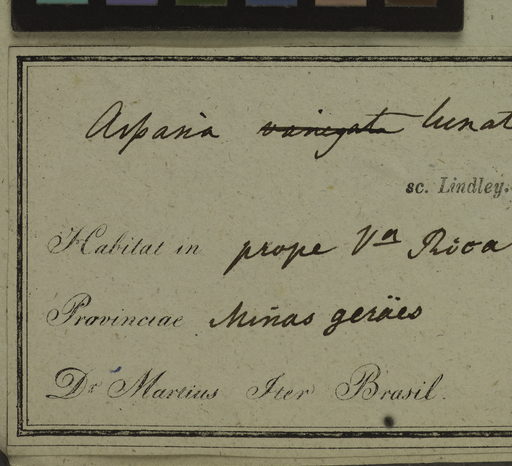 Aspasia variegata lunat
sc. Lindley.
Habitat in prope Vᵃ Rica
Provinciae Minas geräes
Dr Martius Iter Brasil.